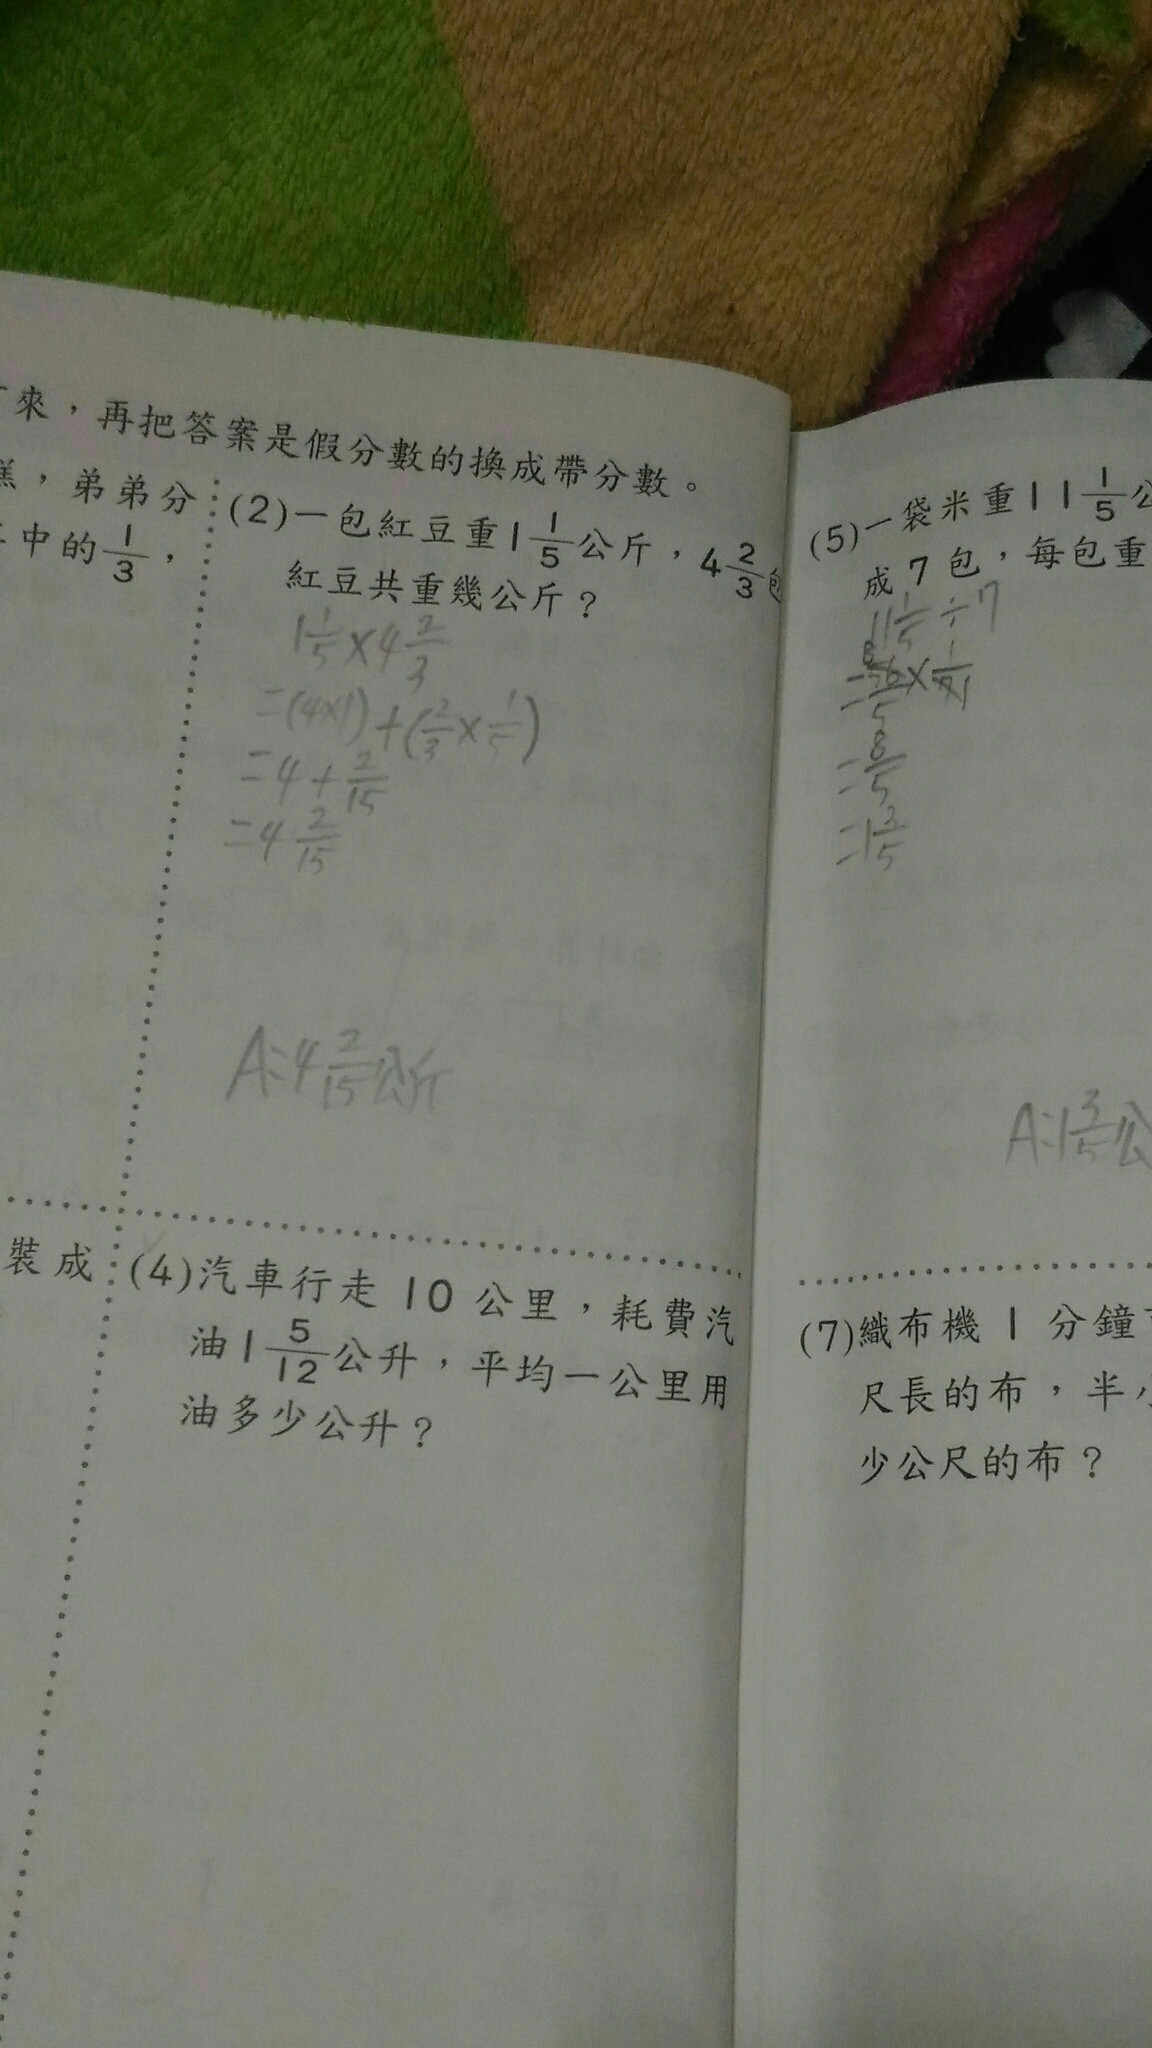 來，再把答案是假分數的換成帶分數。
，弟弟分
中的1/3，
(2)一包紅豆重1 1/5公斤，4 2/3包
紅豆共重幾公斤？
1 1/5×4 2/3
=(4×1)+(2/3×1/5)
=4+2/15
=4 2/15
A:4 2/15公斤
裝成
(4)汽車行走 10 公里，耗費汽
油1 5/12公升，平均一公里用
油多少公升？
(5)一袋米重11 1/5公
成 7 包，每包重
11 1/5÷7
=56/5×1/7
=8/5
=1 3/5
A:1 3/5公
(7)織布機 1 分鐘
尺長的布，半
少公尺的布？